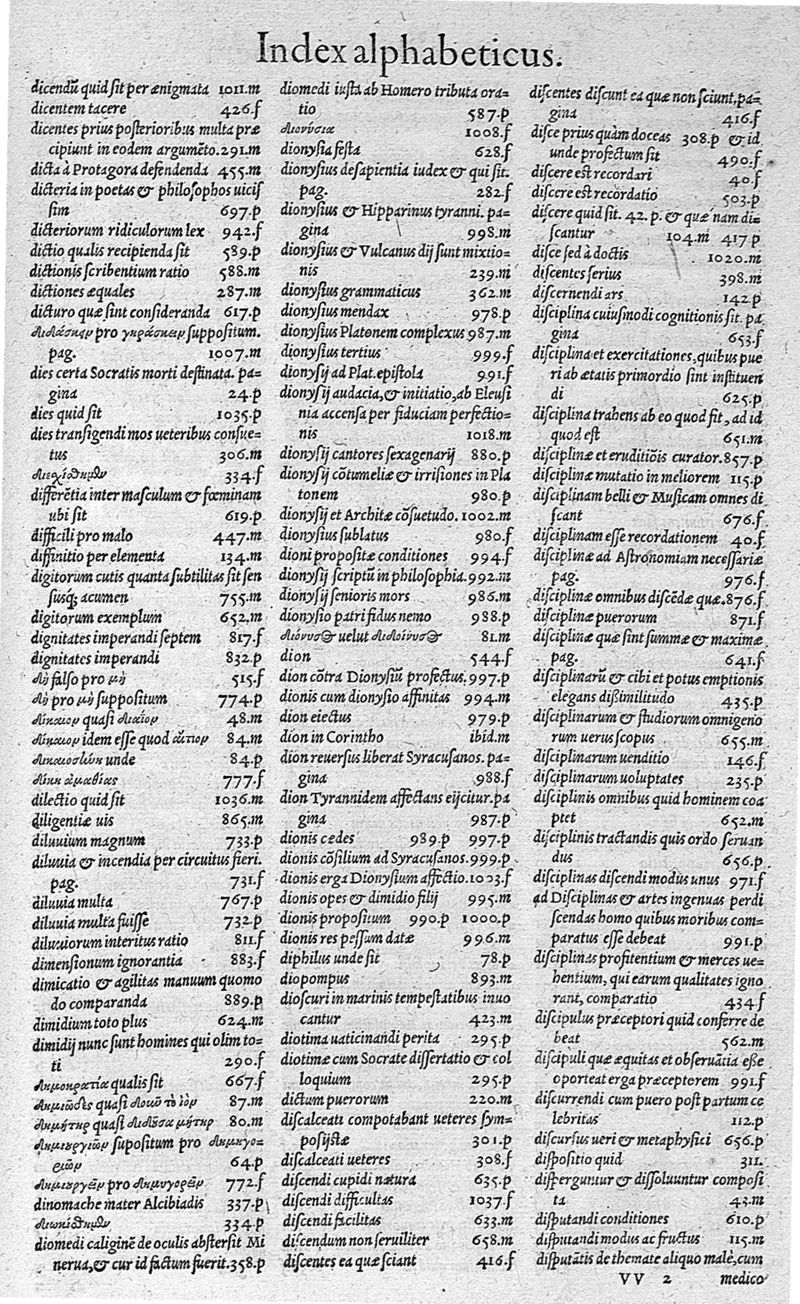 Index alphabeticus.
dicendũ quid sit per ænigmata 1011.m
dicentem tacere 426.f
dicentes prius posterioribus multa præ
cipiunt in eodem argumẽto. 291.m
dicta à Protagora defendenda 455.m
dicteria in poetas & philosophos uicis
sim 697.p
dicteriorum ridiculorum lex 942.f
dictio qualis recipienda sit 589.p
dictionis scribentium ratio 588.m
dictiones æquales 287.m
dicturo quæ sint consideranda 617.p
διδάσκειν pro γηράσκειν suppositum.
pag. 1007.m
dies certa Socratis morti destinata. pa=
gina 24.p
dies quid sit 1035.p
dies transigendi mos ueteribus consue=
tus 306.m
334.f
differẽtia inter masculum & fœminam
ubi sit 619.p
difficili pro malo 447.m
diffinitio per elementa 134.m
digitorum cutis quanta subtilitas sit sen
susq; acumen 755.m
digitorum exemplum 652.m
dignitates imperandi septem 817.f
dignitates imperandi 832.p
δὴ falso pro μὴ 515.f
δὴ pro μὴ suppositum 774.p
δίκαιον quasi διαϊον 48.m
δίκαιον idem esse quod αἴτιον 84.m
δικαιοσύνη unde 84.p
δίκη ἀμαθίας 777.f
dilectio quid sit 1036.m
diligentiæ uis 865.m
diluuium magnum 733.p
diluuia & incendia per circuitus fieri.
pag. 731.f
diluuia multa 767.p
diluuia multa fuisse 732.p
diluuiorum interitus ratio 811.f
dimensionum ignorantia 883.f
dimicatio & agilitas manuum quomo
do comparanda 889.p
dimidium toto plus 624.m
dimidij nunc sunt homines qui olim to=
ti 290.f
δημοκρατία qualis sit 667.f
δημιῶδες quasi δοκοῦ τὸ ἰὸν 87.m
δημήτηρ quasi διδοῦσα μήτηρ 80.m
δημιεργιῶν supositum pro δημηγο=
ριῶν 64.p
δημιεργῶν pro δημυγορῶν 772.f
dinomache mater Alcibiadis 337.p
334.p
diomedi caliginẽ de oculis abstersit Mi
nerua, & cur id factum fuerit. 358.p
diomedi iusta ab Homero tributa ora=
tio 587.p
διονύσια 1008.f
dionysia festa 628.f
dionysius de sapientia iudex & qui sit.
pag. 282.f
dionysius & Hipparinus tyranni. pa=
gina 998.m
dionysius & Vulcanus dij sunt mixtio=
nis 239.m
dionysius grammaticus 362.m
dionysius mendax 978.p
dionysius Platonem complexus 987.m
dionysius tertius 999.f
dionysij ad Plat. epistola 991.f
dionysij audacia, & initiatio, ab Eleusi
nia accensa per fiduciam perfectio=
nis 1018.m
dionysij cantores sexagenarij 880.p
dionysij cõtumeliæ & irrisiones in Pla
tonem 980.p
dionysij et Architæ cõsuetudo. 1002.m
dionysius sublatus 980.f
dioni propositæ conditiones 994.f
dionysij scriptũ in philosophia. 992.m
dionysij senioris mors 986.m
dionysio patri fidus nemo 988.p
διόνυσος uelut διδοίνυσος 81.m
dion 544.f
dion cõtra Dionysiũ profectus. 997.p
dionis cum dionysio affinitas 994.m
dion eiectus 979.p
dion in Corintho ibid.m
dion reuersus liberat Syracusanos. pa=
gina 988.f
dion Tyrannidem affectans eijcitur. pa
gina 987.p
dionis cædes 989.p 997.p
dionis cõsilium ad Syracusanos. 999.p
dionis erga Dionysium affectio. 1003.f
dionis opes & dimidio filij 995.m
dionis propositum 990.p 1000.p
dionis res pessum datæ 996.m
diphilus unde sit 78.p
diopompus 893.m
dioscuri in marinis tempestatibus inuo
cantur 423.m
diotima uaticinandi perita 295.p
diotimæ cum Socrate dissertatio & col
loquium 295.p
dictum puerorum 220.m
discalceati compotabant ueteres sym=
posistæ 301.p
discalceati ueteres 308.f
discendi cupidi natura 635.p
discendi difficultas 1037.f
discendi facilitas 633.m
discendum non seruiliter 658.m
discentes ea quæ sciant 416.f
discentes discunt ea quæ non sciunt. pa=
gina 416.f
disce prius quàm doceas 308.p & id
unde profectum sit 490.f
discere est recordari 40.f
discere est recordatio 503.p
discere quid sit. 42.p. & quæ nam di=
scantur 104.m 417.p
disce sed à doctis 1020.m
discentes serius 398.m
discernendi ars 142.p
disciplina cuiusmodi cognitionis sit. pa
gina 653.f
disciplina et exercitationes, quibus pue
ri ab ætatis primordio sint instituen
di 625.p
disciplina trahens ab eo quod fit, ad id
quod est 651.m
disciplinæ et eruditiõis curator. 857.p
disciplinæ mutatio in meliorem 115.p
disciplinam belli & Musicam omnes di
scant 676.f
disciplinam esse recordationem 40.f
disciplinæ ad Astronomiam necessariæ
pag. 976.f
disciplinæ omnibus discẽdæ quæ. 876.f
disciplinæ puerorum 871.f
disciplinæ quæ sint summæ & maximæ
pag. 641.f
disciplinarũ & cibi et potus emptionis
elegans dißimilitudo 435.p
disciplinarum & studiorum omnigeno
rum uerus scopus 655.m
disciplinarum uenditio 146.f
disciplinarum uoluptates 235.p
disciplinis omnibus quid hominem coa
ptet 652.m
disciplinis tractandis quis ordo seruan
dus 656.p
disciplinas discendi modus unus 971.f
ad Disciplinas & artes ingenuas perdi
scendas homo quibus moribus com=
paratus esse debeat 991.p
disciplinas profitentium & merces ue=
hentium, qui earum qualitates igno
rant, comparatio 434.f
discipulus præceptori quid conferre de
beat 562.m
discipuli quæ æquitas et obseruãcia eße
oporteat erga præceptorem 991.f
discurrendi cum puero post partum ce
lebritas 112.p
discursus ueri & metaphysici 656.p
dispositio quid 311.
disperguntur & dissoluuntur composi
ta 43.m
disputandi conditiones 610.p
disputandi modus ac fructus 115.m
disputãtis de themate aliquo malè, cum
VV 2 medico